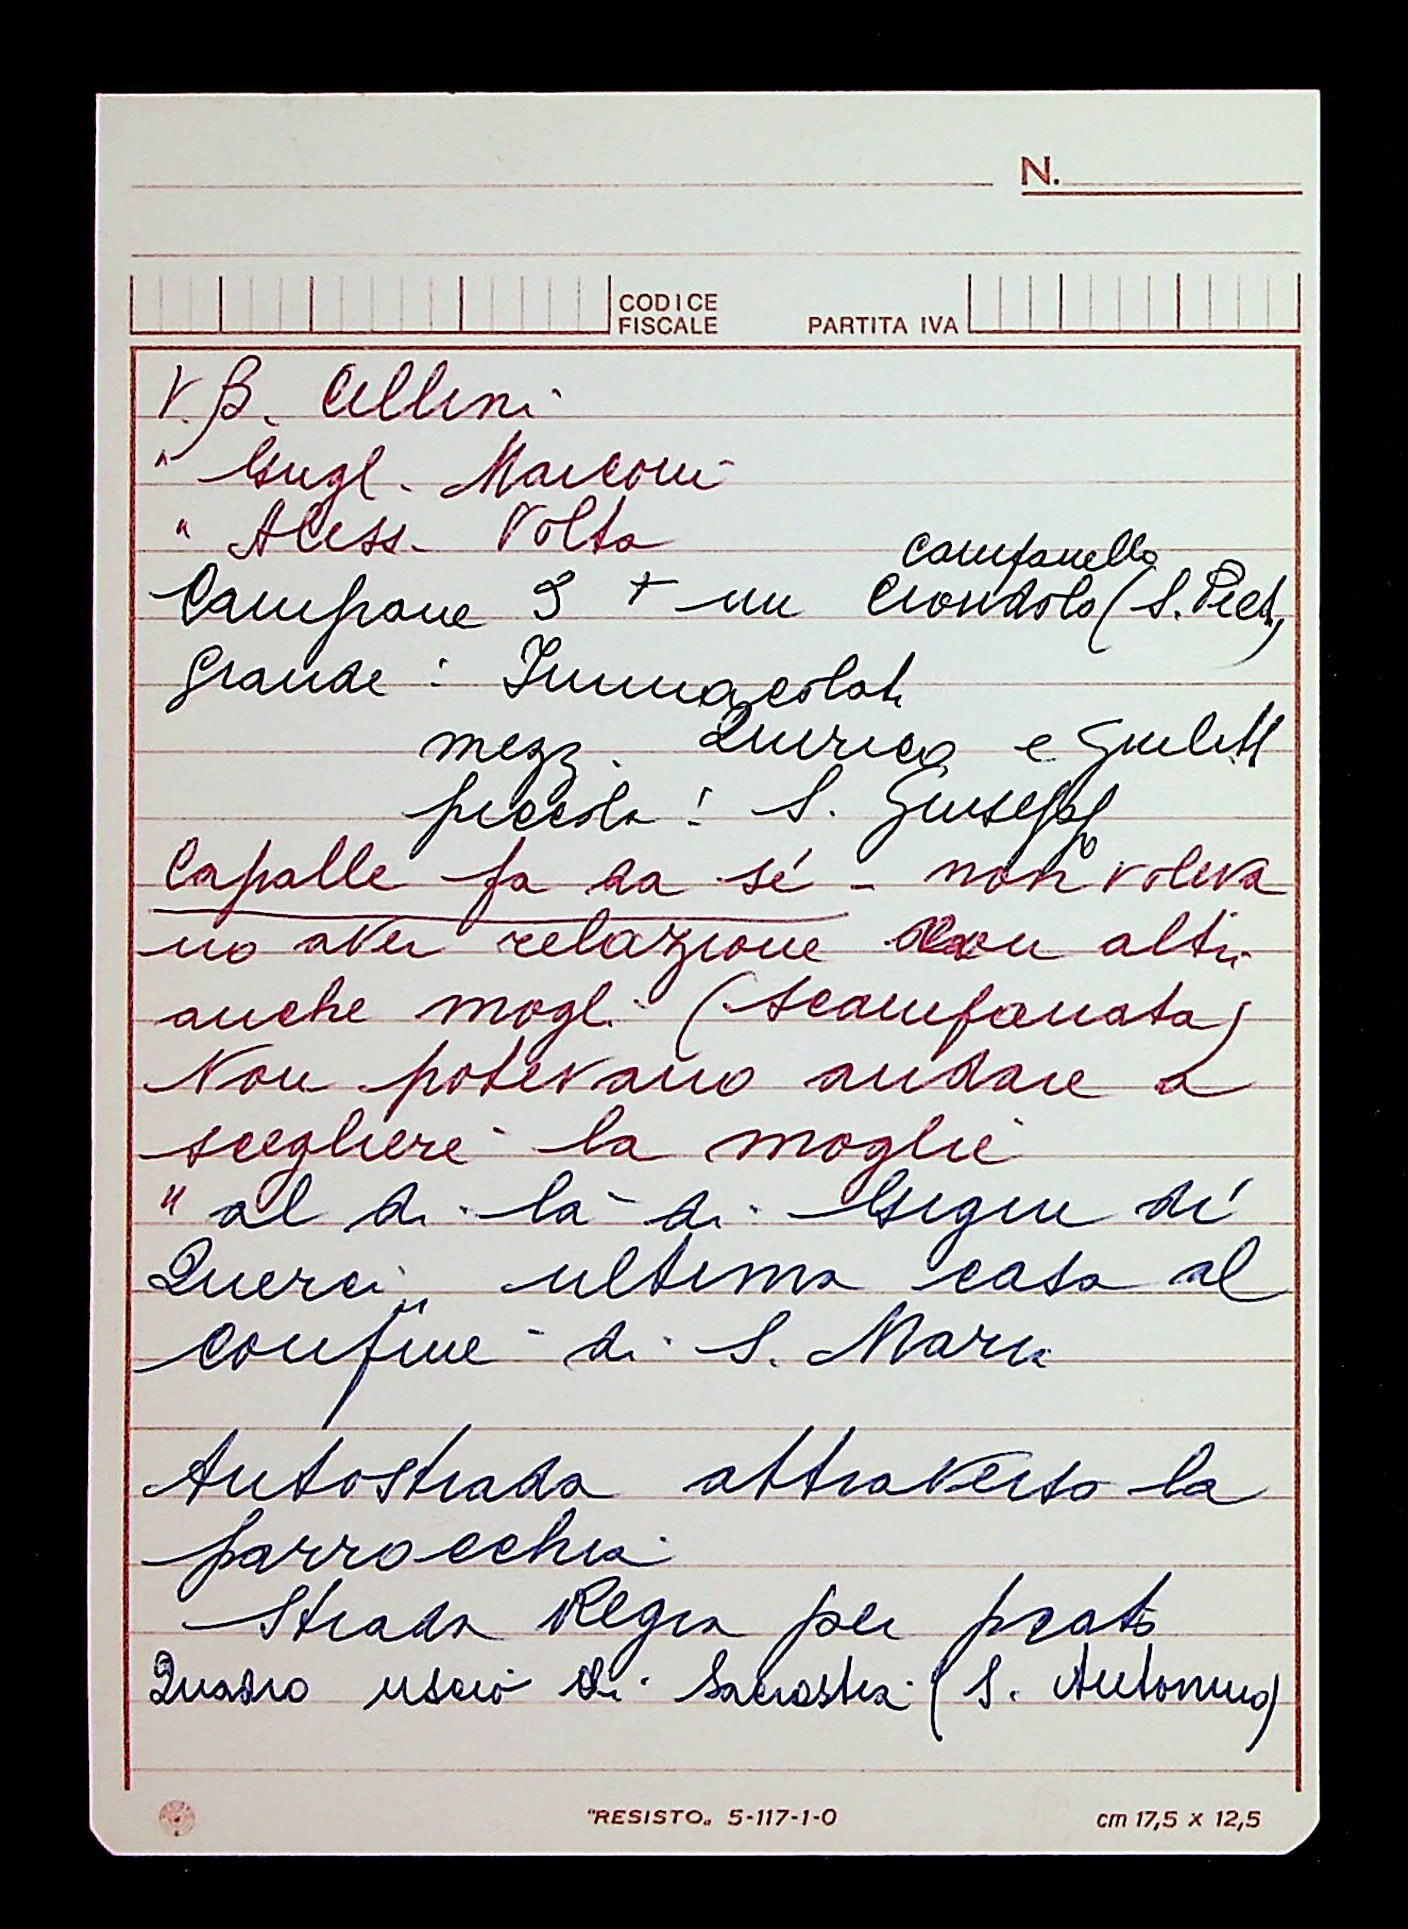 N.
CODICE
FISCALE PARTITA IVA
V. B. Cellini
" Gugl. Marconi
" Aless. Volta
campanello
Campane 3 + un Ciondolo (S. Piet)
grande: Immacolat
mezz. Quirico e Giulitt
piccola: S. Giuseppe
Capalle fa da sé - non voleva
no aver relazione con altri
anche mogli (scampanata)
Non potevano andare a
scegliere la moglie
" al di là di Gigin di
Querci" ultima casa al
confine di S. Maria
Autostrada attraverso la
parrocchia
Strada Regia per prato
Quadro uscio di Sacrestia (S. Antonino)
"RESISTO" 5-117-1-0 cm 17,5 x 12,5